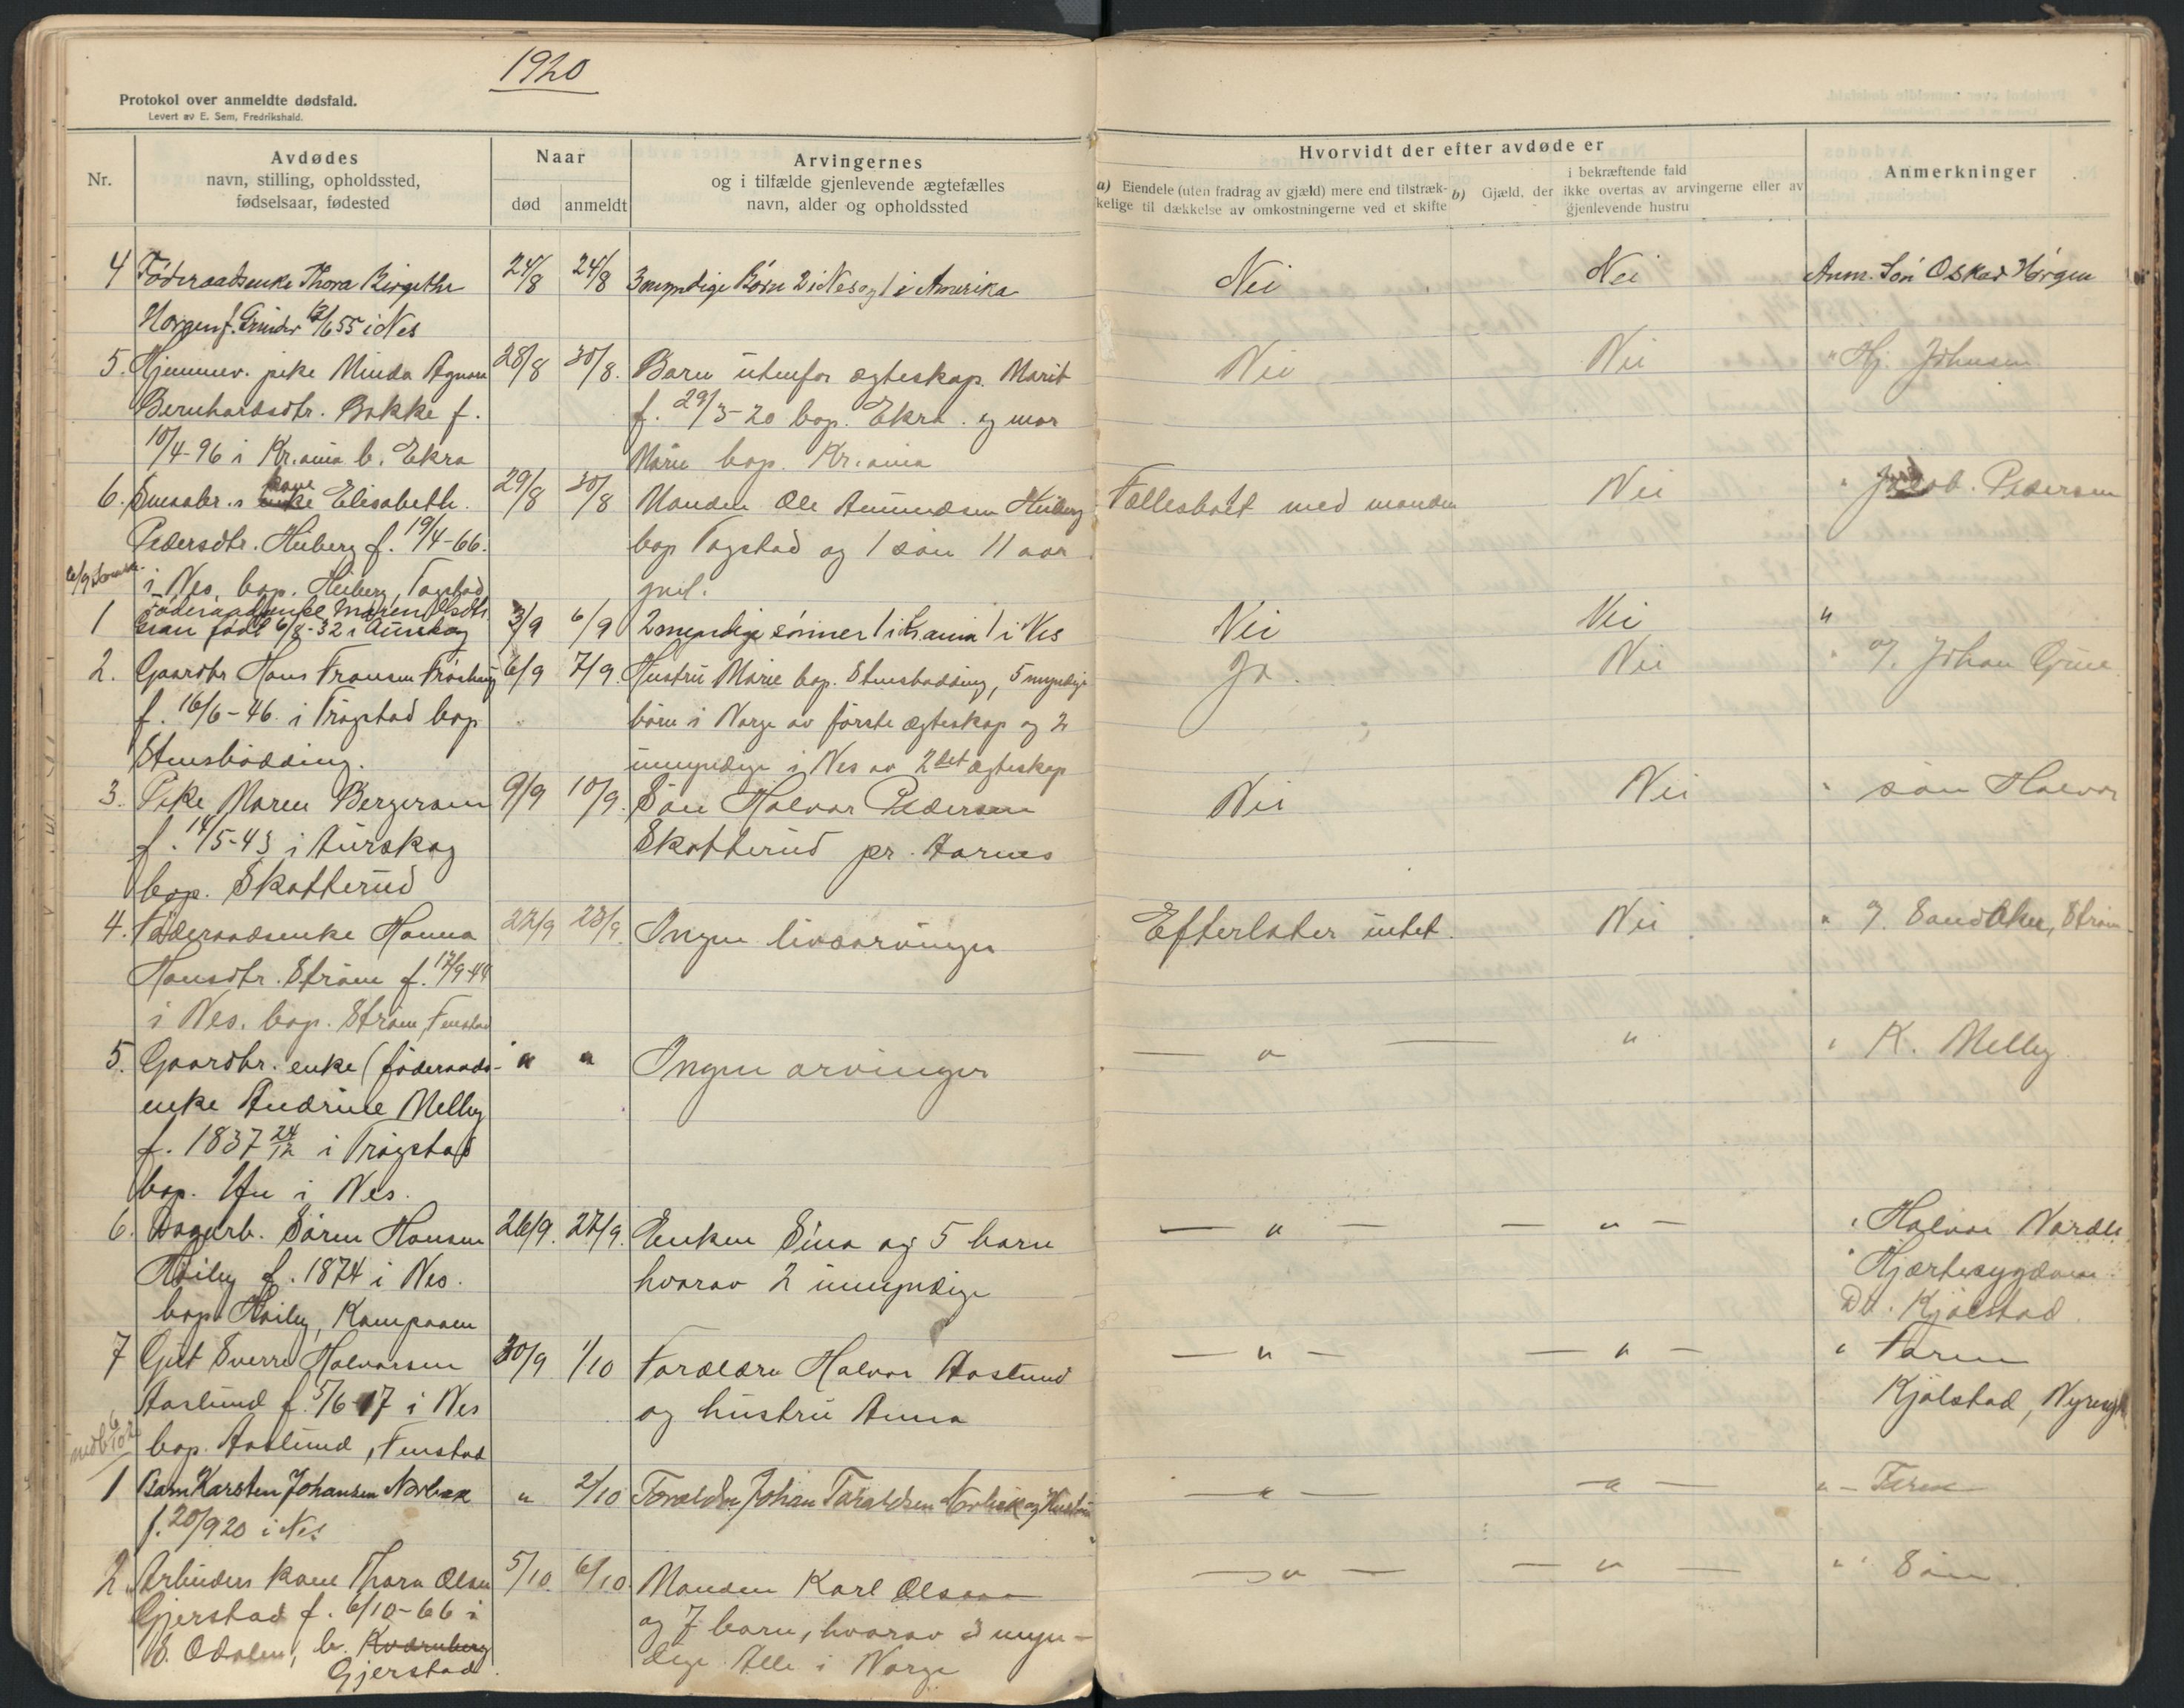 1920
Protokol over anmeldte dødsfald.
Levert av E. Sem, Fredrikshald.
Nr.
Avdødes
navn, stilling, opholdssted,
fødselsaar, fødested
Naar
død
anmeldt
Arvingernes
og i tilfælde gjenlevende ægtefælles
navn, alder og opholdssted
Hvorvidt der efter avdøde er
a) Eiendele (uten fradrag av gjæld) mere end tilstræk-
kelige til dækkelse av omkostningerne ved et skifte
b) Gjæld, der
i bekræftende fald
ikke overtas av arvingerne eller av
gjenlevende hustru
Anmerkninger
4 Föderaadsenke Thora Birgithe 24/8 24/8 3 myndige Börn 2 i Nes og 1 i Amerika Nei Nei Anm. Sön Oskar Horgen
Horgen f. Grinder 12/6 55 i Nes
5. Hjemmev. pike Minda Agnora 28/8 30/8. Barn utenfor ægteskap. Marit Nei Nei " Hj. Johnsen
Bernhardsdtr. Bakke f. f. 29/3-20 bop. Ekra. og mor
10/4-96 i Kr.ania b. Ekra Marie bop. Kr.ania
6. Smaabr.s kone Elisabeth 29/8 30/8 Manden Ole Amundsen Heiberg Fællesboet med manden Nei " Jacob. Pedersen
Pedersdtr. Heiberg f. 19/4-66. bop Tagstad og 1 sön 11 aar
i Nes, bop. Heiberg, Tagstad gml.
1 Föderaadsenke Maren Olsdtr
Gran född 6/8-32 i Aurskog 3/9 6/9 2 myndige sönner 1 i Kr.ania 1 i Nes Nei Nei "
2. Gaardbr Hans Fransen Fröshaug 6/9 7/9. Hustru Marie bop. Stensbødding, 5 myndige Ja. Nei " J. Johan Grue
f. 16/6-46 i Trøgstad bop börn i Norge av förste ægteskap og 2
Stensbødding. umyndige i Nes av 2det ægteskap
3. Pike Maren Bergersen 9/9 10/9. Sön Halvor Pedersen Nei Nei " sön Halvor
f. 14/5-43 i Aurskog Skotterud pr. Aarnes
bop. Skotterud
4. Föderaadsenke Hanna 22/9 23/9. Ingen livsarvinger Efterlater intet. Nei " J. Sandaker, Ström
Hansdtr. Ström f. 17/9-44
i Nes. bop. Ström, Fenstad
5. Gaardbr. enke (föderaads- " " Ingen arvinger — " — " " K. Melby.
enke Andrine Melby
f. 1837 24/12 i Trøgstad
bop. Ufn i Nes.
6. Dagarb. Sören Hansen 26/9. 27/9. Enken Sina og 5 barn — " — — " — " Halvor Nordli
Höiby f. 1874 i Nes. hvorav 2 umyndige " Hjærtesygdom.
bop. Höiby, Kampaaen Dr. Kjölstad
7 Gut Sverre Halvorsen 30/9 1/10 Forældre Halvor Aaslund — " — — " — " Faren
Aaslund f. 5/6-17 i Nes og hustru Anna Kjölstad, Nyresyk
bop. Aaslund, Fenstad
1 Barn Karsten Johansen Norbæk " 2/10 Forældre Johan Taraldsen Norbæk og Hustru — " — — " — " - Faren
f. 20/9 20 i Nes
2. Arbeiders kone Thora Olsen 5/10. 6/10. Manden Karl Olsen — " — — " — " " Sön.
Gjerstad f. 6/10-66 i og 7 barn, hvorav 3 myn-
S. Odalen, b. Kværnberg dige Alle i Norge
Gjerstad.